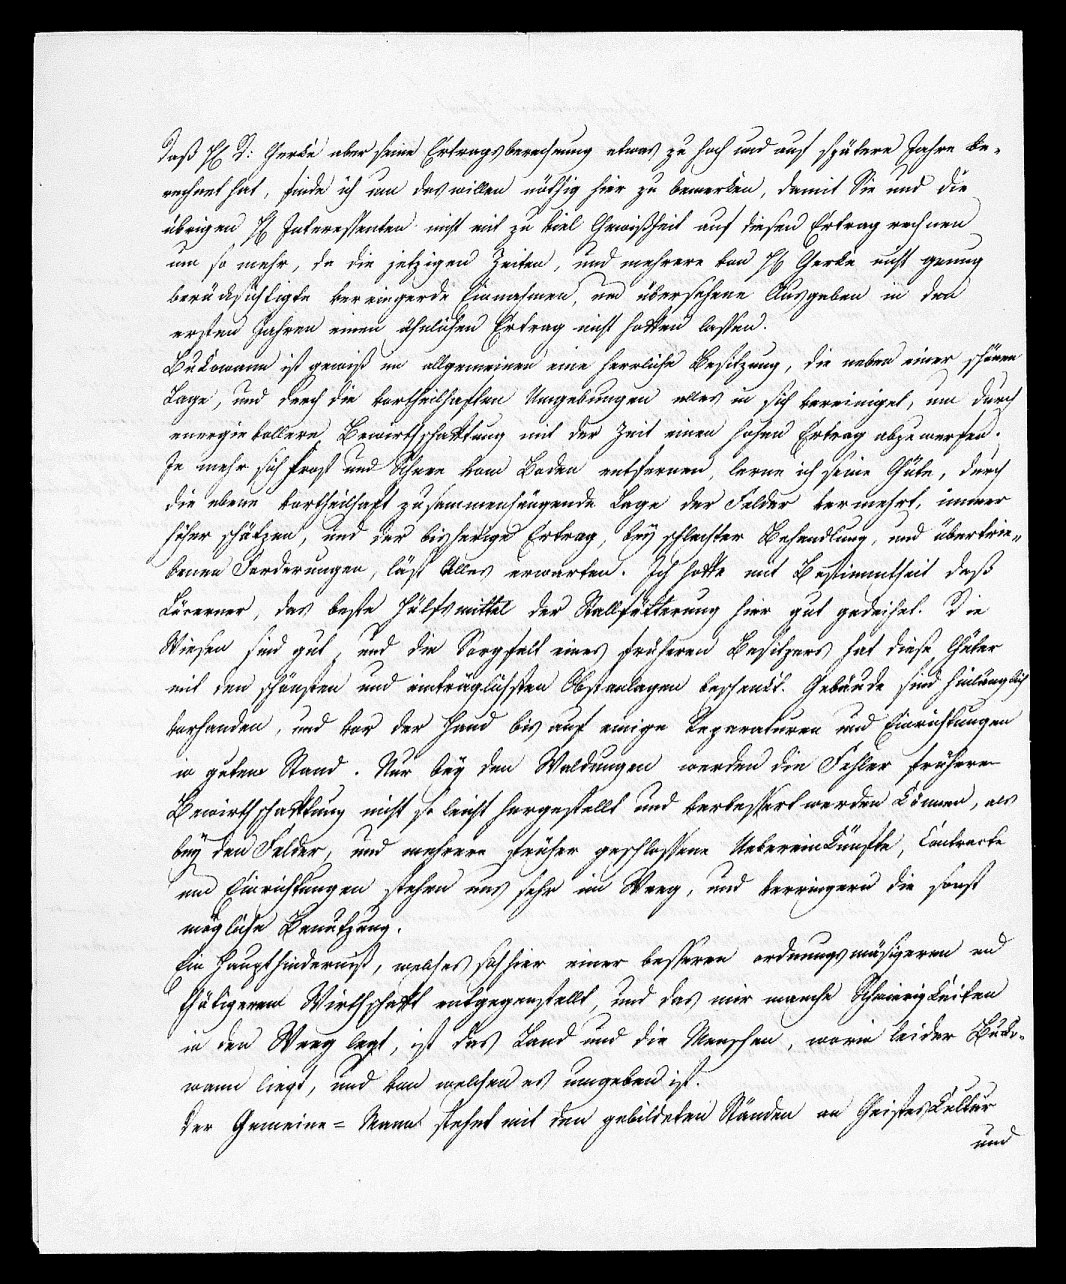 daß H. D: Gerke aber seine Ertragsberechnung etwas zu hoch und auf spätere Jahre be-
rechnet hat, finde ich um deswillen nöthig hier zu bemerken, damit Sie und die
übrigen H Interessenten nicht mit zu viel Gewißheit auf diesen Ertrag rechnen
um so mehr, da die jetzigen Zeiten, und mehrere von H Gerke nicht genug
berücksichtigte verringerde Einnahmen, und übersehene Ausgaben in den
ersten Jahren einen ähnlichen Ertrag nicht hoffen lassen.
Bukowann ist gewiß im allgemeinen eine herrliche Besitzung, die neben einer schönen
Lage, und durch die vortheilhaften Umgebungen alles in sich vereiniget, um durch
energievollere Bewirthschaftung mit der Zeit einen hohen Ertrag abzuwerfen.
Je mehr sich Frost und Schnee vom Boden entfernen, lerne ich seine Güte, durch
die ebene vortheilhaft zusammenhängende Lage der Felder vermehrt, immer
höher schätzen, und der bisherige Ertrag, bey schlechter Behandlung, und übertrie-
benen Forderungen, läst Alles erwarten. Ich hoffe mit Bestimmtheit daß
Lucerner, das beste Hülfsmittel der Stallfütterung hier gut gedeihet. Die
Wiesen sind gut, und die Sorgfalt eines früheren Besitzers hat diese Güter
mit den schönsten und einträglichsten Obstanlagen beschenkt. Gebäude sind hinlänglich
vorhanden, und vor der Hand bis auf einige Reparaturen und Einrichtungen
in gutem Stand. Nur bey den Waldungen werden die Fehler früherer
Bewirthschaftung nicht so leicht hergestellt und verbessert werden können, als
bey den Felder, und mehrere früher geschlossene Uebereinkünfte, Contracte
und Einrichtungen stehen uns sehr im Weeg, und verringern die sonst
mögliche Benutzung.
Ein Haupthinderniß, welches sich hier einer besseren ordnungsmäsigeren und
thätigeren Wirthschaft entgegenstellt, und das mir manche Schwierigkeiten
in den Weeg legt, ist das Land und die Menschen, worin leider Buko-
wann liegt, und von welchen es umgeben ist.
Der Gemeine-Mann stehet mit den gebildeten Ständen an Geistes Cultur
und